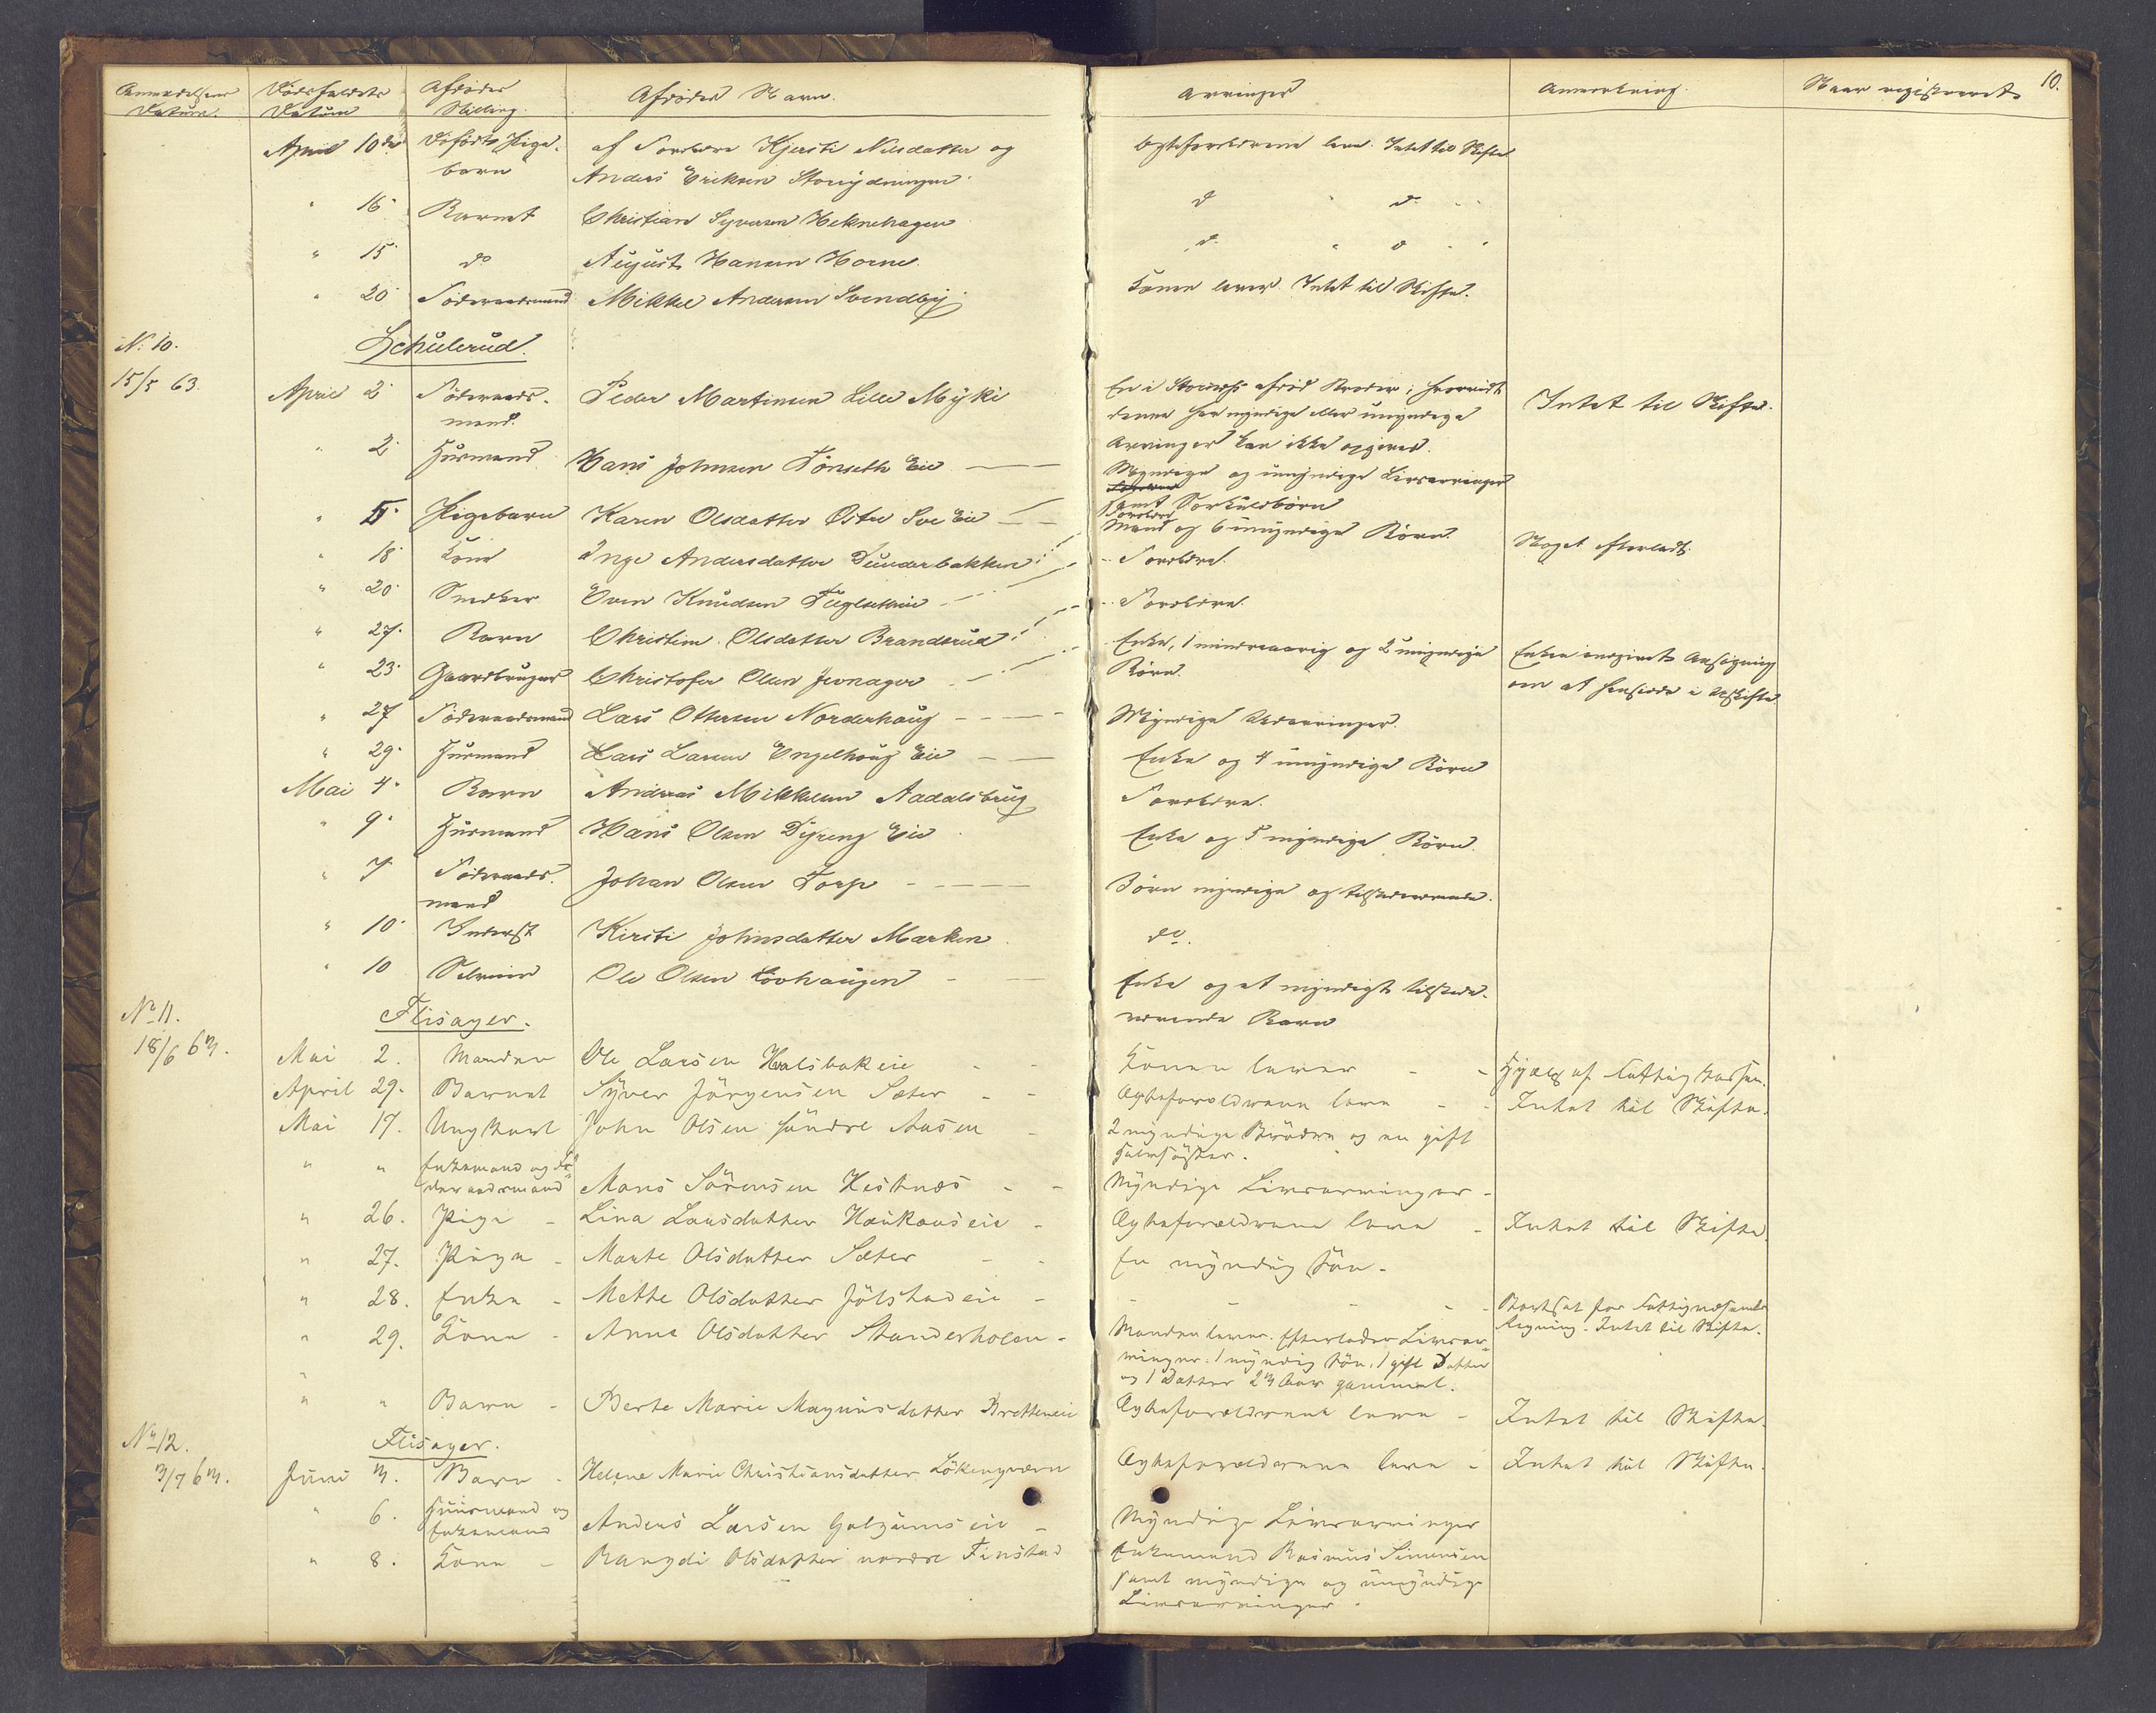 Anmeldelsens Datum. Dødsfaldets Datum Afdødes Stilling. Afdødes Navn. Arvinger Anmerkning. Naar registreret 10.
April 10de Dødfødt Pige- af Forældre Kjersti Nilsdatter og Ægteforældrene lever. Intet til Skifte
barn Anders Eriksen
" 16 Barnet Christian Syversen Heknehagen d d
" 15 do August Hansen Horne d d
" 20 Föderaadsmand Mikkel Andersen Svendby Konen lever. Intet til Skifte.
N: 10. Schulerud.
15/5 63. April 2 Föderaads- Peder Martinsen Lille Myki En i afdød Broder; hvorvidt Intet til Skifte.
mand. denne har myndige eller umyndige
Arvinger kan ikke opgives.
" 2 Husmand Hans Johnsen Tønseth Eie Myndige og umyndige Livsarvinger
samt Sorkuldbörn
" 5 Pigebarn Karen Olsdatter Østre Sve Eie Forældre
" 18 Kone Inge Andersdatter Dunderbakken Mand og 6 umyndige Börn. Noget efterladt.
" 20 Snedker Even Knudsen Fuglsetheie Forældre.
" 27 Barn Christine Olsdatter Brandsrud Forældre.
" 23 Gaardbruger Christofer Olsen Jevnager Enke, 1 mindreaarig og 2 umyndige Enken indgivet Ansøgning
Börn. om at hensidde i uskifte
" 27 Föderaadsmand Lars Ottersen Norderhoug Myndige Udarvinger.
" 29 Husmand Lars Larsen Engelhoug Eie Enke og 4 umyndige Börn
Mai 4 Barn Andreas Mikkelsen Aadalsbrug Forældre.
" 9 Husmand Hans Olsen Dyreng Eie Enke og 5 myndige Börn.
" 7 Föderaads- Johan Olsen Torp Börn myndige og tilstedeværende.
mand
" 10 Inderst Kirsti Johnsdatter Marken do.
" 10 Selveier Ole Olsen Lövhaugen Enke og et myndigt tilstede-
værende Barn
No 11. Flisager.
18/6 63. Mai 2. Manden Ole Larsen Halsbakeie Konen lever Hjælp af Fattigkassen.
April 29. Barnet Syver Jörgensen Sæter Ægteforældrene leve Intet til Skifte.
Mai 17. Ungkarl John Olsen söndre Aasen 2 myndige Brödre og en gift
Halvsöster.
" " Enkemand og Fö-
deraadsmand Mons Sörensen Hestnæs Myndige Livsarvinger
" 26. Pige Lina Larsdatter Haukaaseie Ægteforældrene leve Intet til Skifte.
" 27. Pige Marte Olsdatter Sæter En myndig Sön.
" 28. Enke Mette Olsdatter Jölstadeie Bortsat for Fattigvæsenets
Regning. Intet til Skifte.
" 29. Kone Anne Olsdatter Standerholen Manden lever. Efterlader Livsar-
vinger: 1 myndig Sön, 1 gift Datter
og 1 Datter 23 Aar gammel.
" " Barn Berte Marie Magnusdatter Bretteneie Ægteforældrene leve Intet til Skifte.
No 12. Flisager.
3/7 63. Juni 3. Barn Helene Marie Christiansdatter Lökengværn Ægteforældrene leve Intet til Skifte.
" 6. Huusmand og
Enkemand Anders Larsen Galgumseie Myndige Livsarvinger
" 8. Kone Rangdi Olsdatter nordre Finstad Enkemand Rasmus Simensen
samt myndige og umyndige
Livsarvinger.